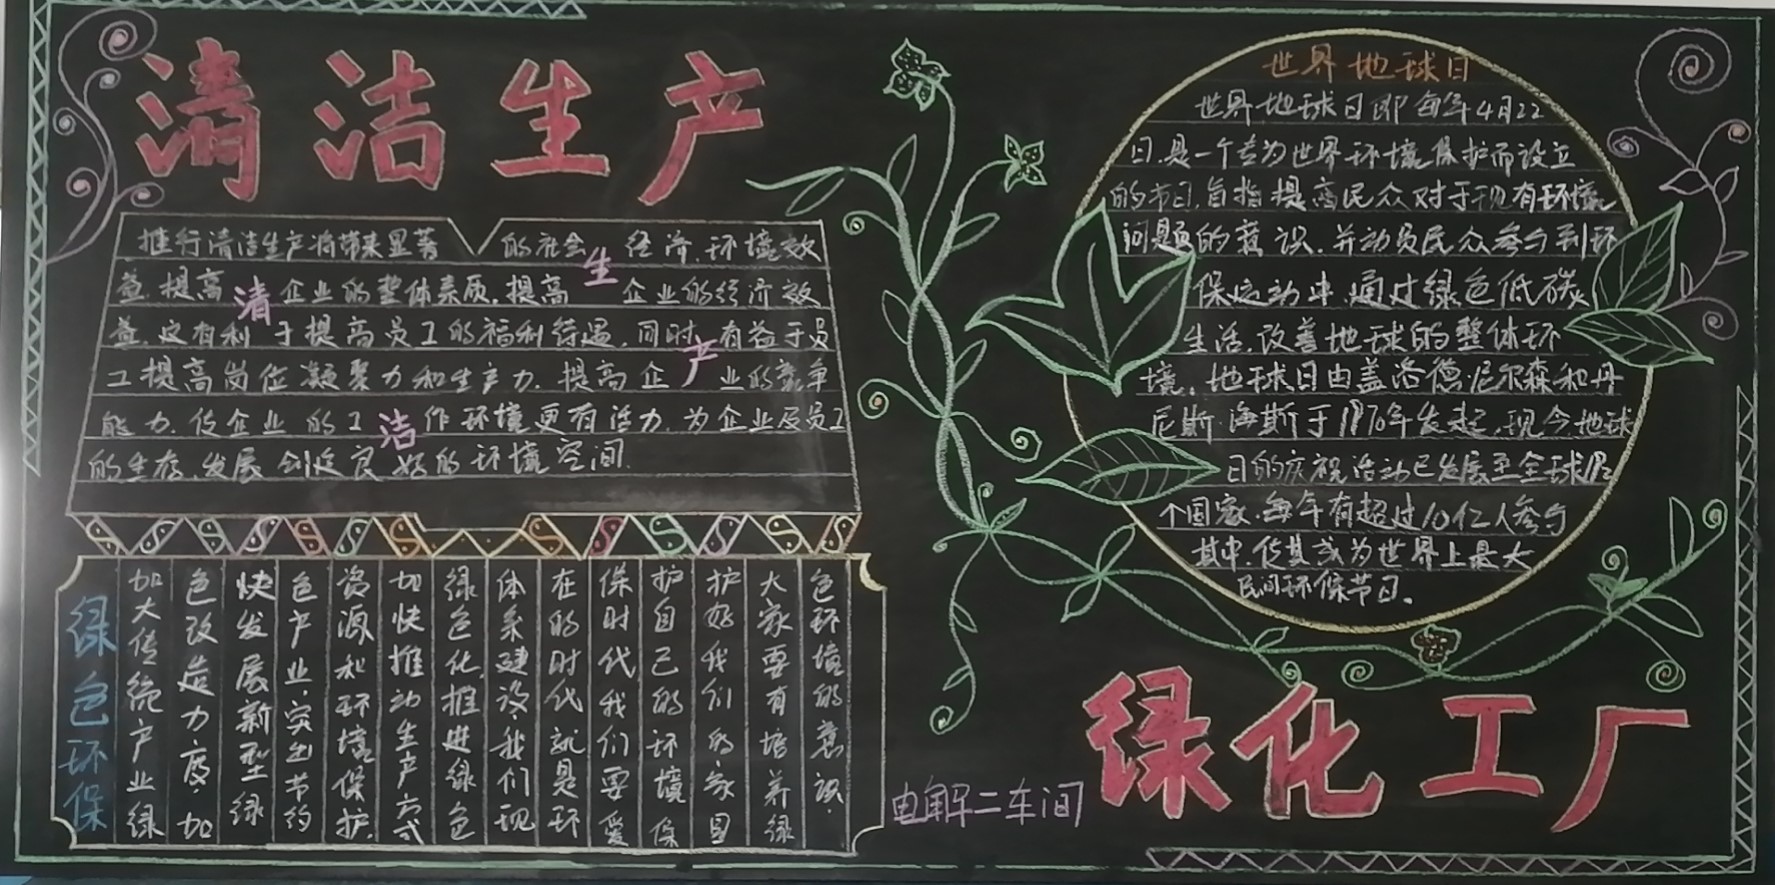 清洁生产
推行清洁生产将带来显著的社会经济、环境效
益,提高企业的整体素质,提高企业的经济效
益,这有利于提高员工的福利待遇,同时有益于员
工提高岗位凝聚力和生产力,提高企业的竞争
能力,使企业的工作环境更有活力,为企业及员工
的生存、发展创造良好的环境空间.
清
洁
生
产
绿色环保
加大传统产业绿
色改造力度,加
快发展新型绿
色产业,实出节约
资源和环境保护,
加快推动生产方式
绿色化,推进绿色
体系建设,我们现
在的时代就是环
保时代我们要爱
护自己的环境保
护好我们的家园
大家要有培养绿
色环境的意识.
世界地球日
世界地球日即每年4月22
日,是一个专为世界环境保护而设立
的节日,旨指提高民众对于现有环境
问题的意识,并动员民众参与到环
保运动中,通过绿色低碳
生活,改善地球的整体环
境。地球日由盖洛德·尼尔森和丹
尼斯·海斯于1970年发起,现今地球
日的庆祝活动已发展至全球192
个国家,每年有超过10亿人参与
其中,使其成为世界上最大
民间环保节日。
绿化工厂
电解二车间